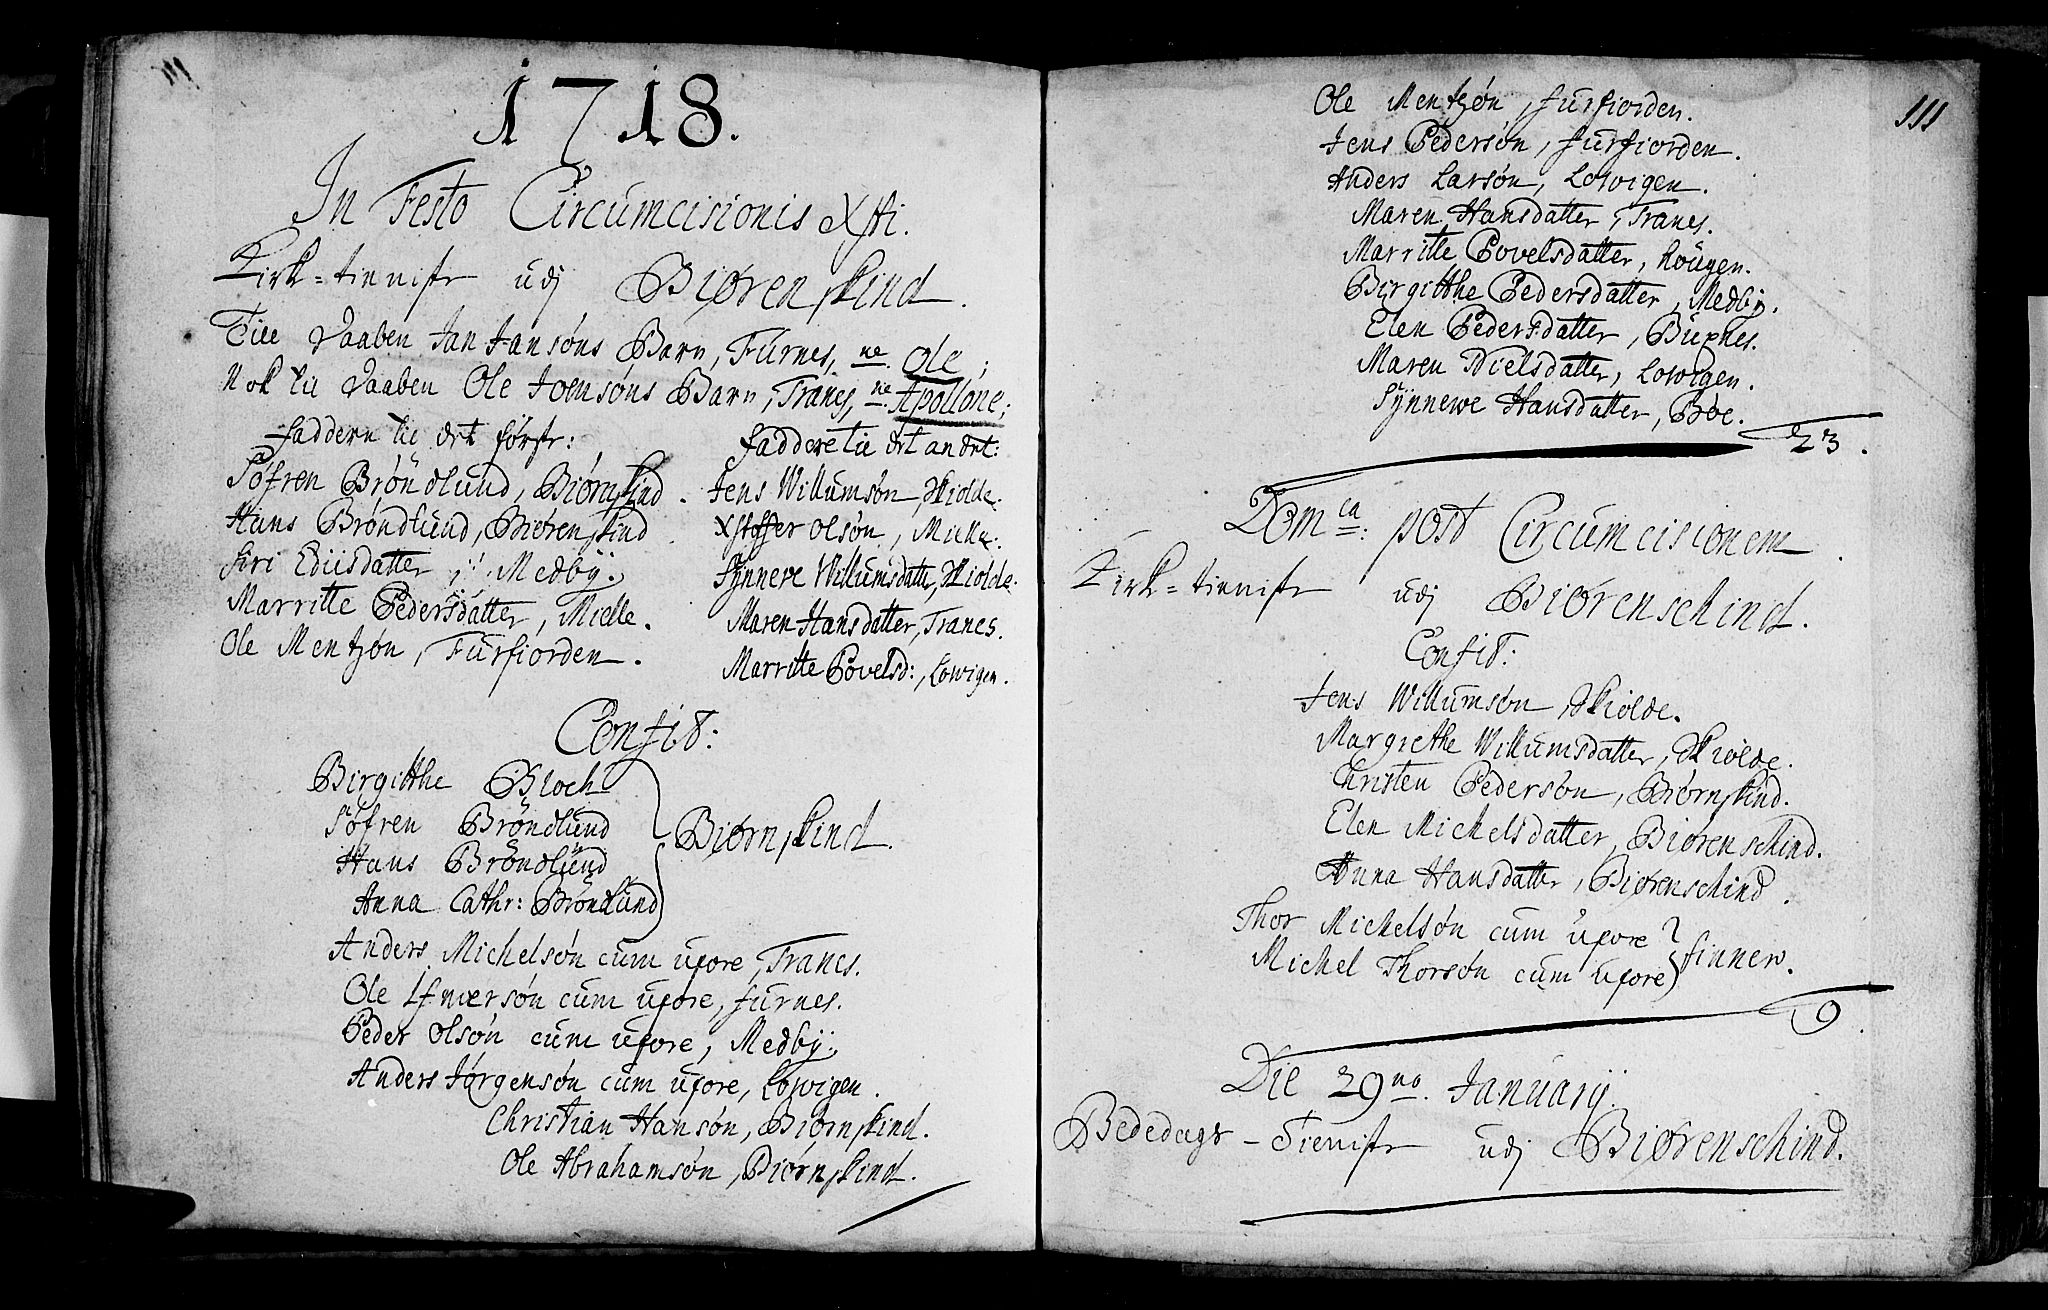 1718.
In Festo Circumcisionis Xsti.
Kirk=tieniste udj Biørenskind.
Till Daaben Jan Jansøns Barn, Furnes, ne. Ole;
Nok til Daaben Ole Joensøns Barn, Tranes, ne. Apollone;
faddere til det første:
Søfren Bröndlund, Biørnskind.
Hans Brøndlund, Biørenskind.
Siri Ediisdatter, Medbÿ.
Marritte Pedersdatter, Mielle.
Ole Mentzøn, Furfiorden.
faddere til det andet:
Jens Willumsøn, Skiolde.
Xstoffer Olsøn, Mielle.
Synneve Willumsdatter, Skiolde.
Maren Hansdatter, Tranes.
Marritte Povelsd:, Lowigen.
Confit:
Birgitthe Bloch
Søfren Bröndlund
Hans Bröndlund
Anna Cathr: Bröndlund
Biørnskind.
Anders Michelsøn cum uxore, Tranes.
Ole cum uxore, furnes.
Peder Olsøn cum uxore, Medbÿ.
Anders Jørgensøn cum uxore, Lowigen.
Christian Hansøn, Biørnskind.
Ole Abrahamsøn, Biørnskind.
111
Ole Mentzøn, furfiorden.
Jens Pedersøn, furfiorden.
Anders Larsøn, Lowigen.
Maren Hansdatter, Tranes.
Marritte Povelsdatter, Lougen.
Birgitthe Pedersdatter, Medbÿ.
Elen Pedersdatter, Buxnes.
Maren Nielsdatter, Lowigen.
Synnewe Hansdatter, Bøe.
23.
Domca: post Circumcisionem.
Kirk=tieniste udj Biørenschind.
Confit:
Jens Willumsøn, Skiolde.
Margrethe Willumsdatter, Skiolde.
Christen Pedersøn, Biørnskind.
Elen Michelsdatter, Biørenschind.
Anna Hansdatter, Biørenschind.
Thor Michelsøn cum uxore
Michel Thorsøn cum uxore
finner.
9.
Die 29no. Januarÿ.
Bededags-Tieniste udj Biørenschind.